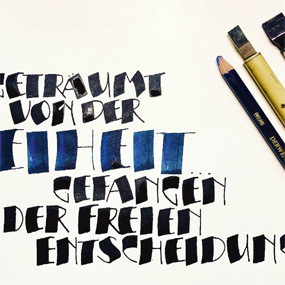 GETRÄUMT
VON DER
EIHEIT
GEFANGEN
DER FREIEN
ENTSCHEIDUNG